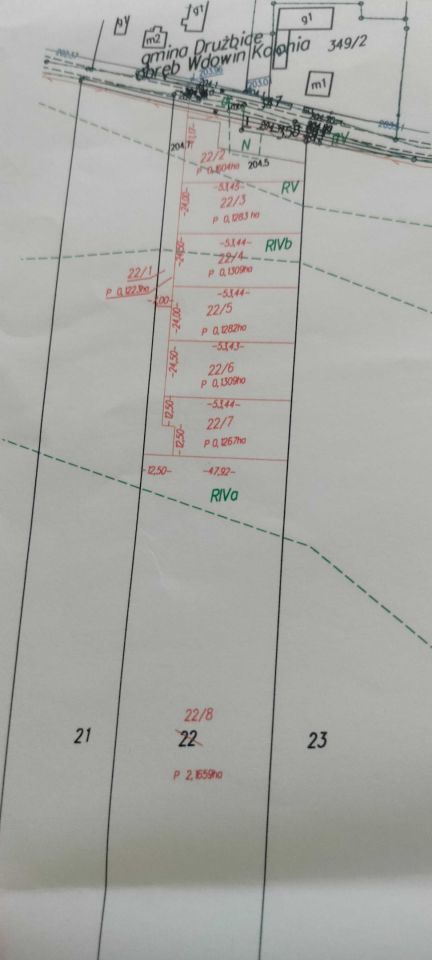 g1
g1
m2
gmina Drużbice
obręb Wdowin Kolonia
349/2
m1
N
204.5
22/2
P 0,1604ha
-53,45-
RV
RV
-24,00-
22/3
P 0,1283 ha
-53,44-
RIVb
-24,50-
22/4
P 0,1309ha
22/1
P 0,1223ha
-53,44-
-24,00-
22/5
P 0,1282ha
-53,43-
-24,50-
22/6
P 0,1309ha
-53,44-
12,50-
22/7
-12,50-
P 0,1267ha
-12,50-
-47,92-
RIVa
22/8
21
22
23
P 2,1659ha